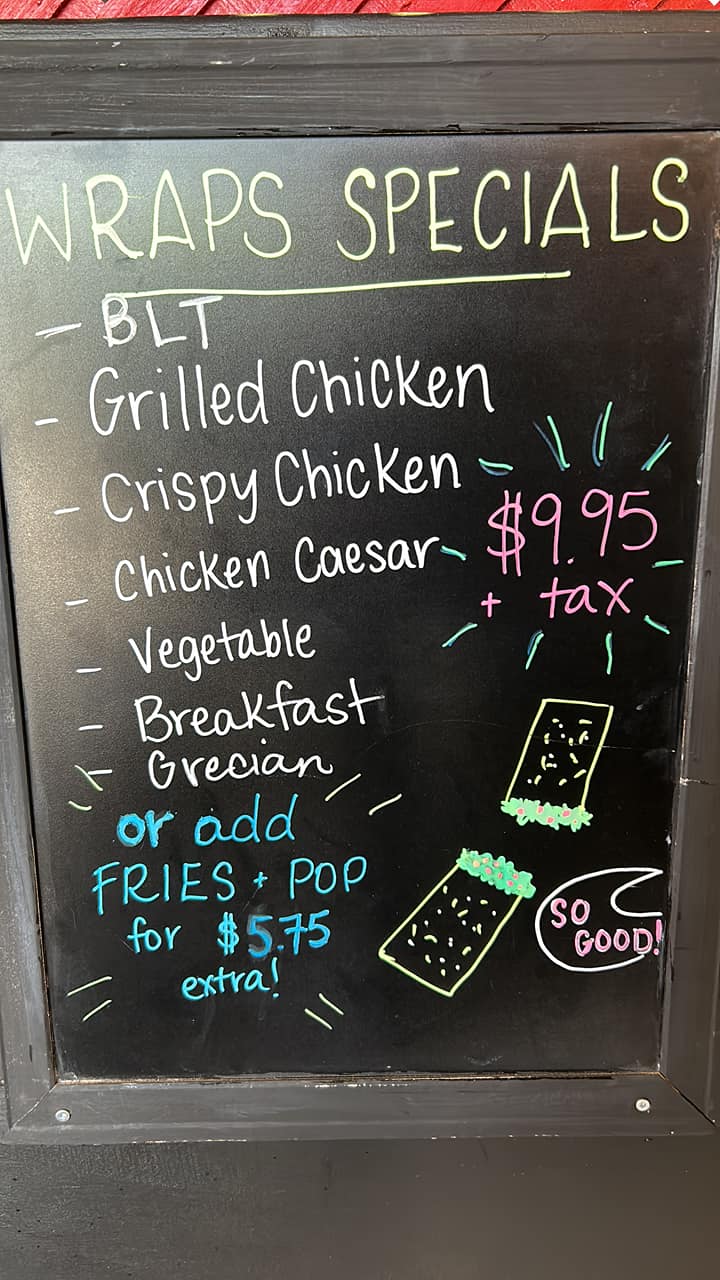 WRAPS SPECIALS
- BLT
- Grilled Chicken
- Crispy Chicken
- Chicken Caesar
$9.95
+ tax
- Vegetable
- Breakfast
- Grecian
or add
FRIES + POP
for $5.75
extra!
SO
GOOD!